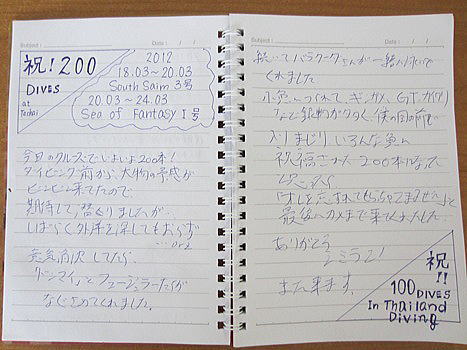 Subject :
Date : / /
祝!200
DIVES
at
Tachai
2012
18.03~20.03
South Saim 3号
20.03~24.03
Sea of Fantasy I号
今日のクルーズでいよいよ200本!
ダイビング前から、大物の予感が
ビンビン来てたので
期待して、潜りましたが…
しばらく外洋を探してもおらず
意気消沈してたら、
「ドンマイ」とフュージュラーたちが
なぐさめてくれました。
Subject :
Date : / /
続いてバラクーダさんが一緒に泳いで
くれました
小魚につられて、ギンガメ、GT、カスミアジ
など銀物がワタワタ、僕の目の前で
入りまじり、いろんな魚に
祝福された200本になった
と思ったら
「オレを忘れてもらっちゃこまるぜ」と
最後にカメまで来てくれました
ありがとう
シミラン!
また来ます。
祝!!
100 DIVES
In Thailand
Diving